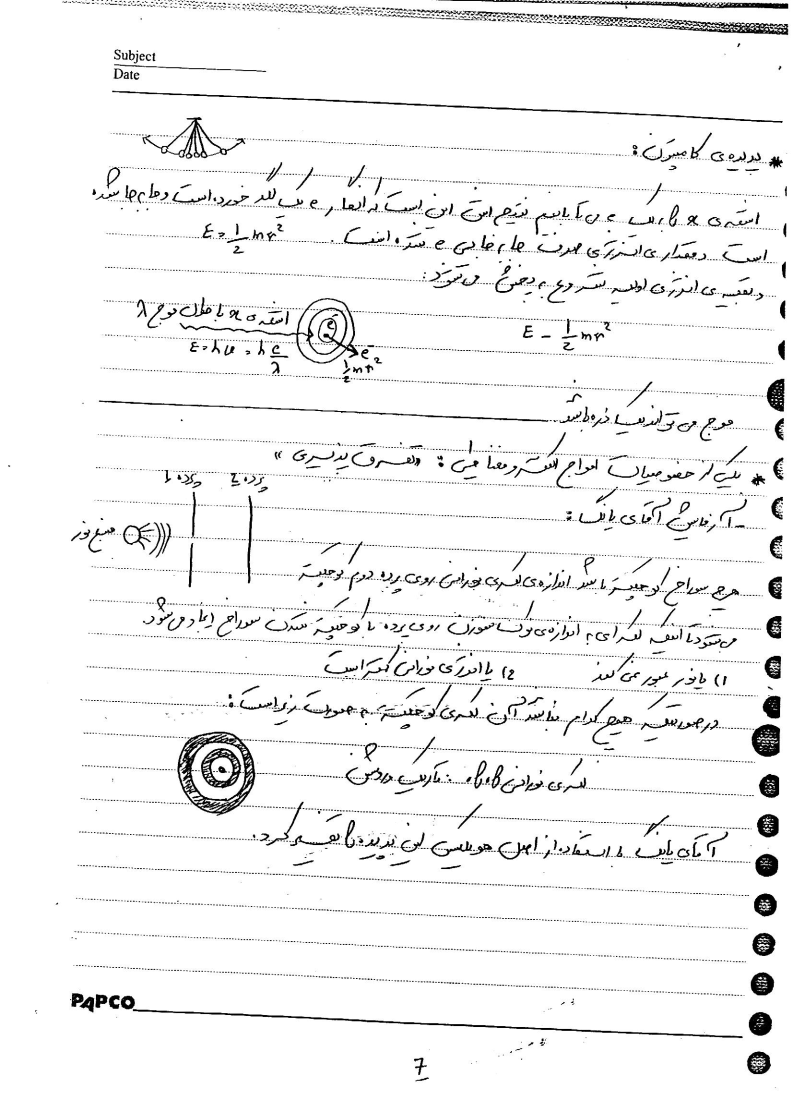 Subject
Date
* پدیده‌ی کامپتون:
اشعه‌ی x را یک e بتابانیم نتیجه این است که انگار e یک لگد خورده است و جابه‌جا شده
است و مقداری انرژی صرف جابه‌جایی e شده است. E = ½ mv²
و بقیه‌ی انرژی اولیه شروع به پخش می‌شود:
اشعه‌ی x با طول موج λ
E = hυ = h c/λ
e
e
½ mv²
E = ½ mv²
موج می‌تواند یک ذره باشد
* یکی از خصوصیات امواج الکترومغناطیس: «تفرق پذیری»
- آزمایش آقای یانگ:
پرده ۱
پرده ۲
منبع نور
هرچه سوراخ کوچکتر باشد اندازه‌ی لکه‌ی نورانی روی پرده دوم کوچکتر
می‌شود تا اینکه لکه‌ای به اندازه‌ی روی پرده با کوچکتر شدن سوراخ ایجاد می‌شود
۱) یا نور عبور نمی‌کند ۲) یا انرژی نورانی کمتر است
در صورتیکه هیچ کدام نباشد آن لکه‌ی کوچکتر به صورت زیر است:
لکه‌ی نورانی گاه گاه: تاریک و روشن
آقای یانگ با استفاده از اصل هویگنس این پدیده را تفسیر کرد.
PAPCO
7